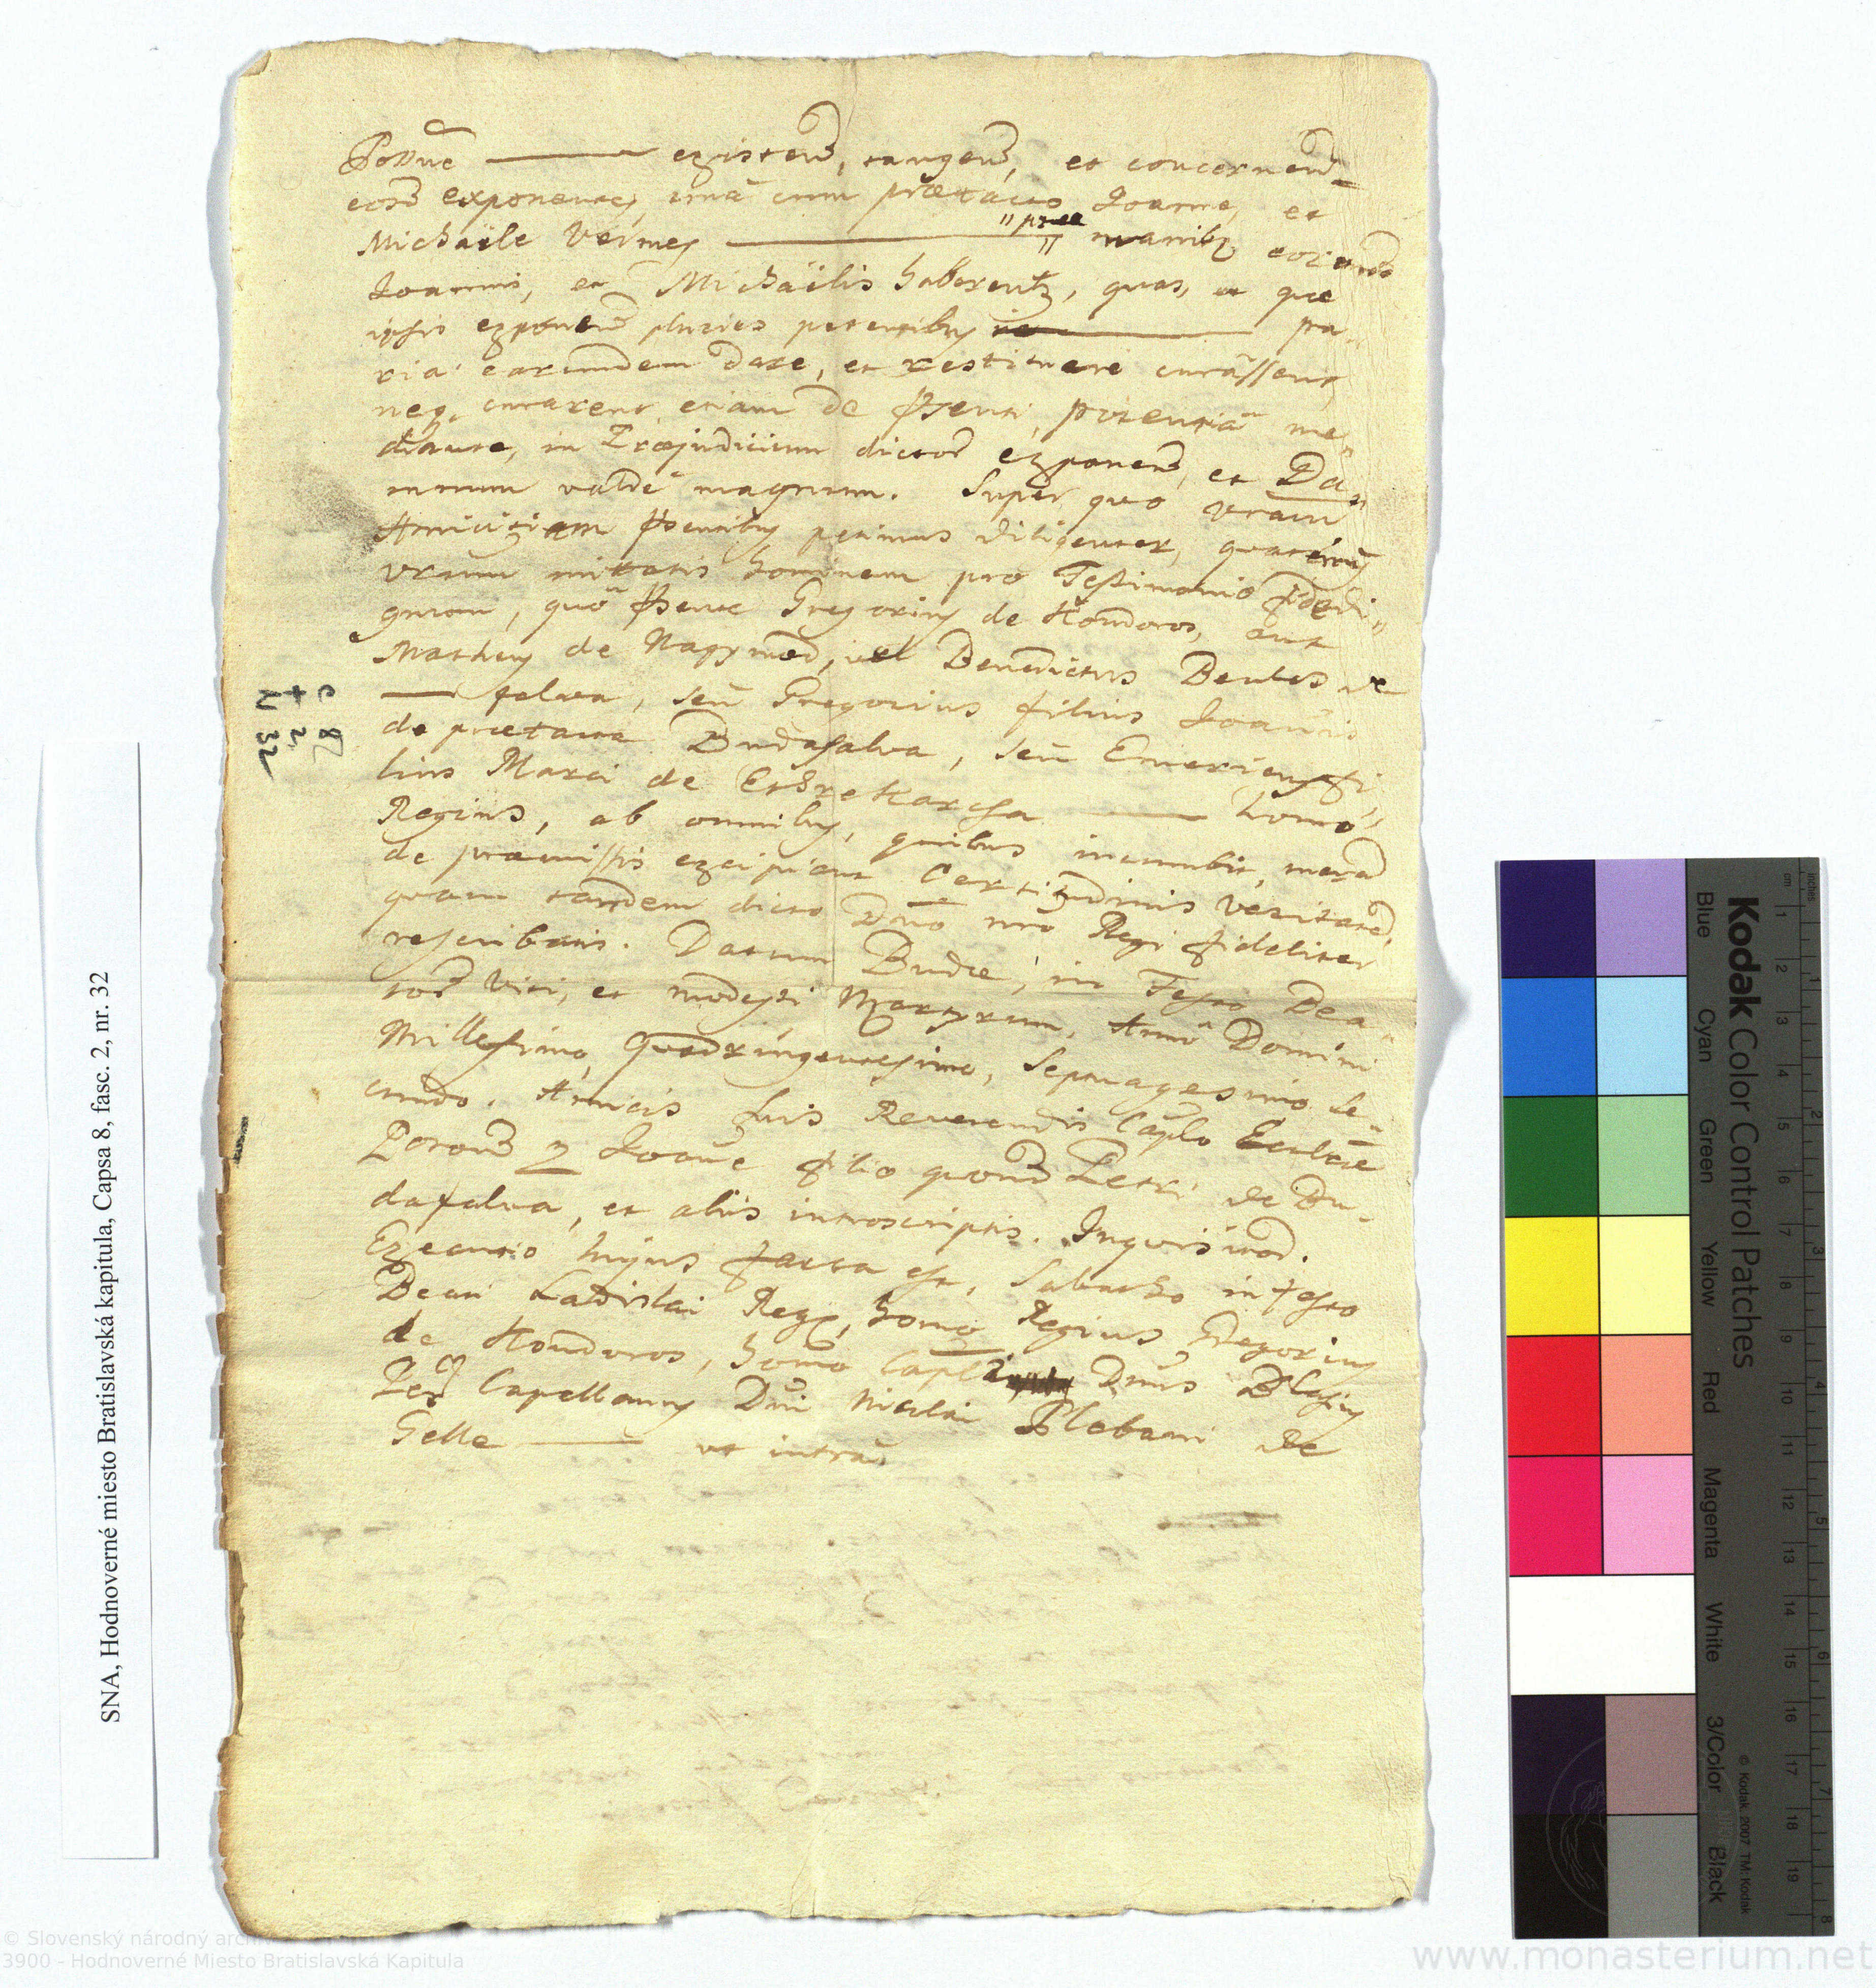 Possnẽ ——— existen, tangen, et concernen=
eosd exponentes, unà cum prætacto Joanne, et
Michaële Vermes ——— "præ" manibz eorund
Joannis, et Michaëlis haberentr, quas, et quæ
ipsis exponen pluries petentibus ——— pa„
ria earumdem dare, et restituere curâssent,
neq curarent etiam de psenti, potentiâ me„
diante, in Præjudicium dictor exponen, et Da„
mnum valdè magnum. Super quo vram
Amicitiam psentibus petimus diligenter, quatenus
vrum mittatis hominem pro Testimonio fidedi„
gnum, quô psente Gregorius de Kondoros, aut
Matheus de Nagymad, vel Benedictus Bentes de
——— falva, seu Gregorius filius Joannis
de prætacta Budafalva, seu Emericus fi„
lius Marci de Etrekarcsa ——— homo
Regius, ab omnibus, quibus incumbit, merã
de præmissis excipiant Certitudinis Veritatẽ,
quam tandem dicto Dno nro Regi fideliter
rescribatis. Datum Budæ, in Festo Bea„
tor Viti, et Modesti Martyrum, Annô Domini
Millesimo, Quadringentesimo, Septuagesimo Se„
cundo. Amicis suis Reverendis Caplo Ecclesiæ
Poson 2 Joanne filio quond Petri de Bu„
dafalva, et aliis introscriptis. Inquisitoria.
Executio hujus facta est, Sabatho in festo
Beati Ladislai Regis, homo Regius Gregorius
de Kondoros, homo Capli Dnus Blasius
Capellanus Dni Nicolai Plebani de
Gelle ——— ut intra
c 8
f 2
N 32
SNA, Hodnoverné miesto Bratislavská kapitula, Capsa 8, fasc. 2, nr. 32
Kodak Color Control Patches
Blue Cyan Green Yellow Red Magenta White 3/Color Black
© Kodak, 2007 TM: Kodak
cm 1 2 3 4 5 6 7 8 9 10 11 12 13 14 15 16 17 18 19
inches 1 2 3 4 5 6 7 8
© Slovenský národný archív
3900 - Hodnoverné Miesto Bratislavská Kapitula
www.monasterium.net